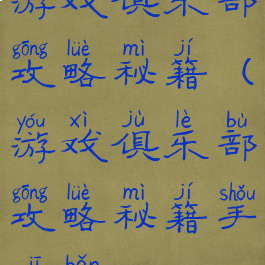 游戏俱乐部
gōng lüè mì jí
攻略秘籍（
yóu xì jù lè bù
游戏俱乐部
gōng lüè mì jí shǒu
攻略秘籍手
jī bǎn